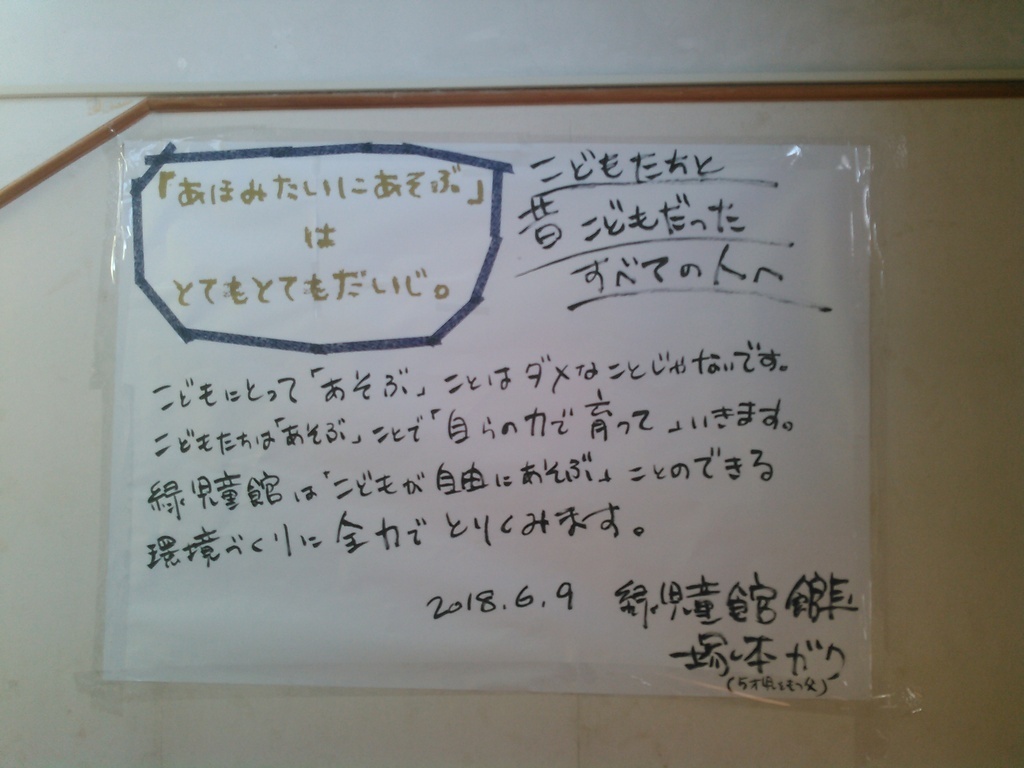 「あほみたいにあそぶ」
は
とてもとてもだいじ。
こどもたちと
昔こどもだった
すべての人へ
こどもにとって「あそぶ」ことはダメなことじゃないです。
こどもたちは「あそぶ」ことで「自らの力で育って」いきます。
緑児童館は「こどもが自由にあそぶ」ことのできる
環境づくりに全力でとりくみます。
2018.6.9 緑児童館館長
塚本ガク
(5才児をもつ父)